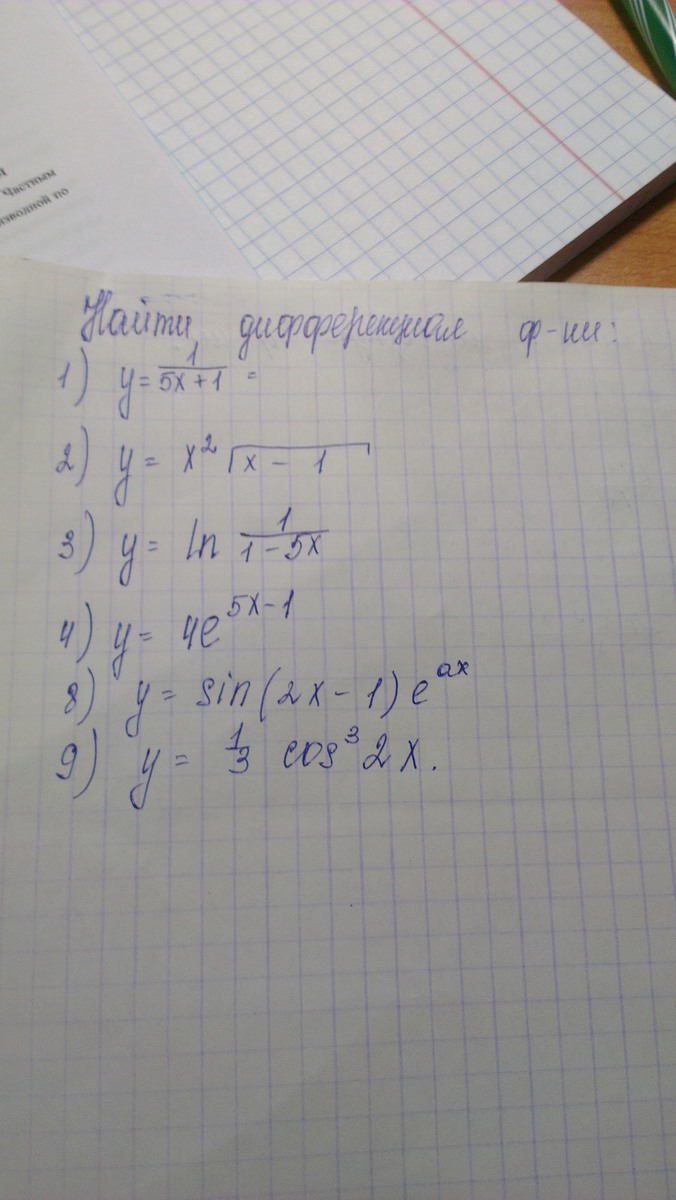 Частным
Найти дифференциал ф-ии:
1) y = 1/(5x+1) =
2) y = x² √(x - 1)
3) y = ln 1/(1-5x)
4) y = 4e^(5x-1)
8) y = sin(2x-1) e^(ax)
9) y = 1/3 cos³ 2x.